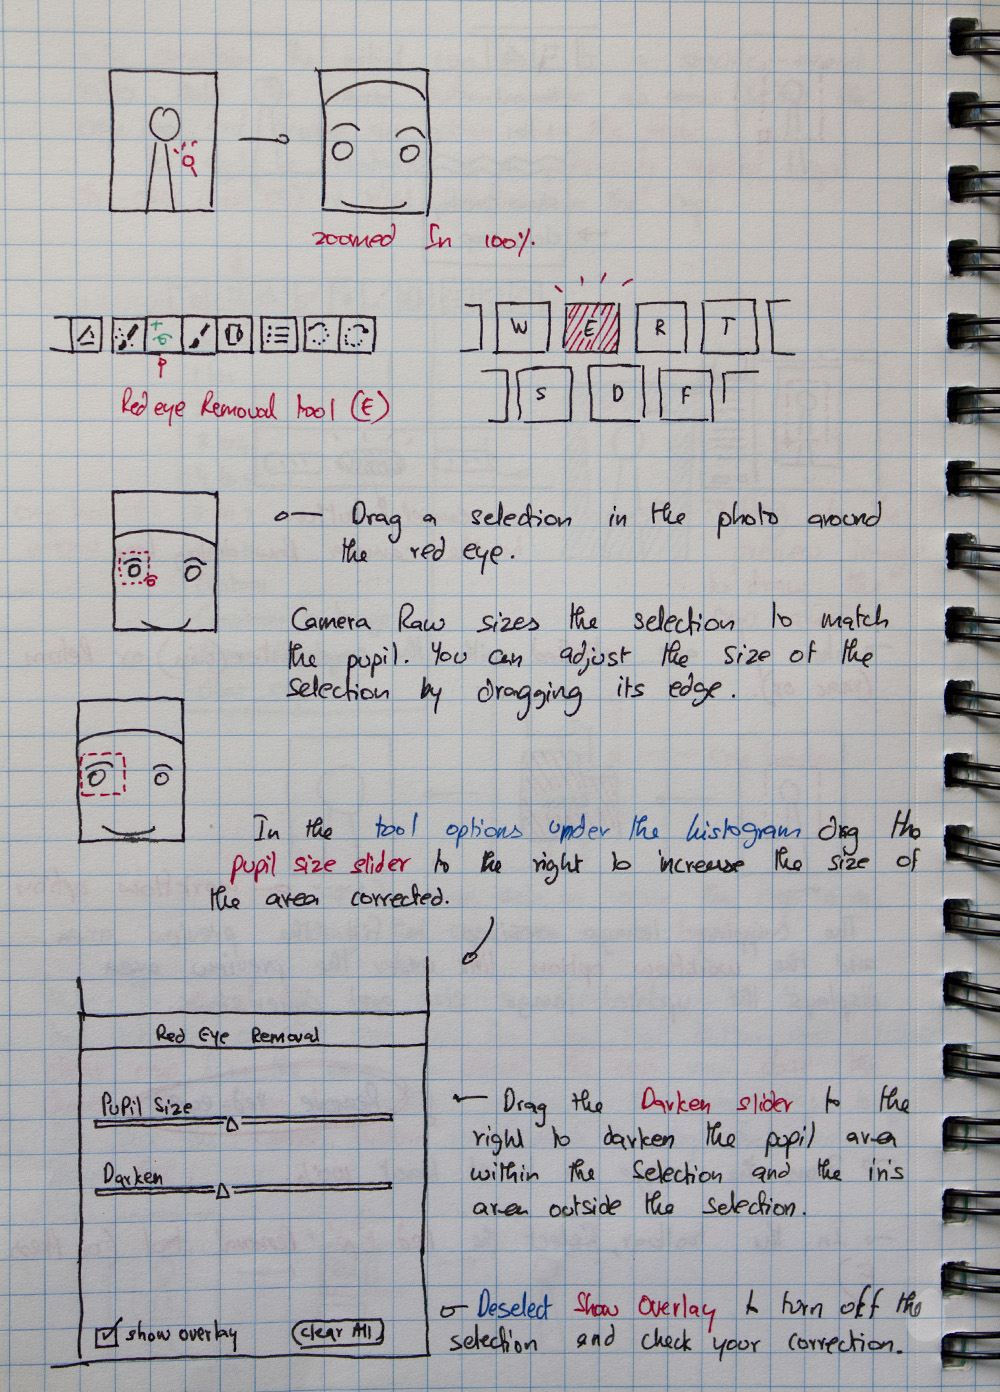 zoomed In 100%.
W E R T
S D F
Red eye Removal tool (E)
Drag a selection in the photo around
the red eye.
Camera Raw sizes the selection to match
the pupil. You can adjust the size of the
selection by dragging its edge.
In the tool options under the histogram drag the
pupil size slider to the right to increase the size of
the area corrected.
Red Eye Removal
Pupil Size
Darken
show overlay
Clear All
Drag the Darken slider to the
right to darken the pupil area
within the selection and the iris
area outside the selection.
Deselect Show Overlay to turn off the
selection and check your correction.